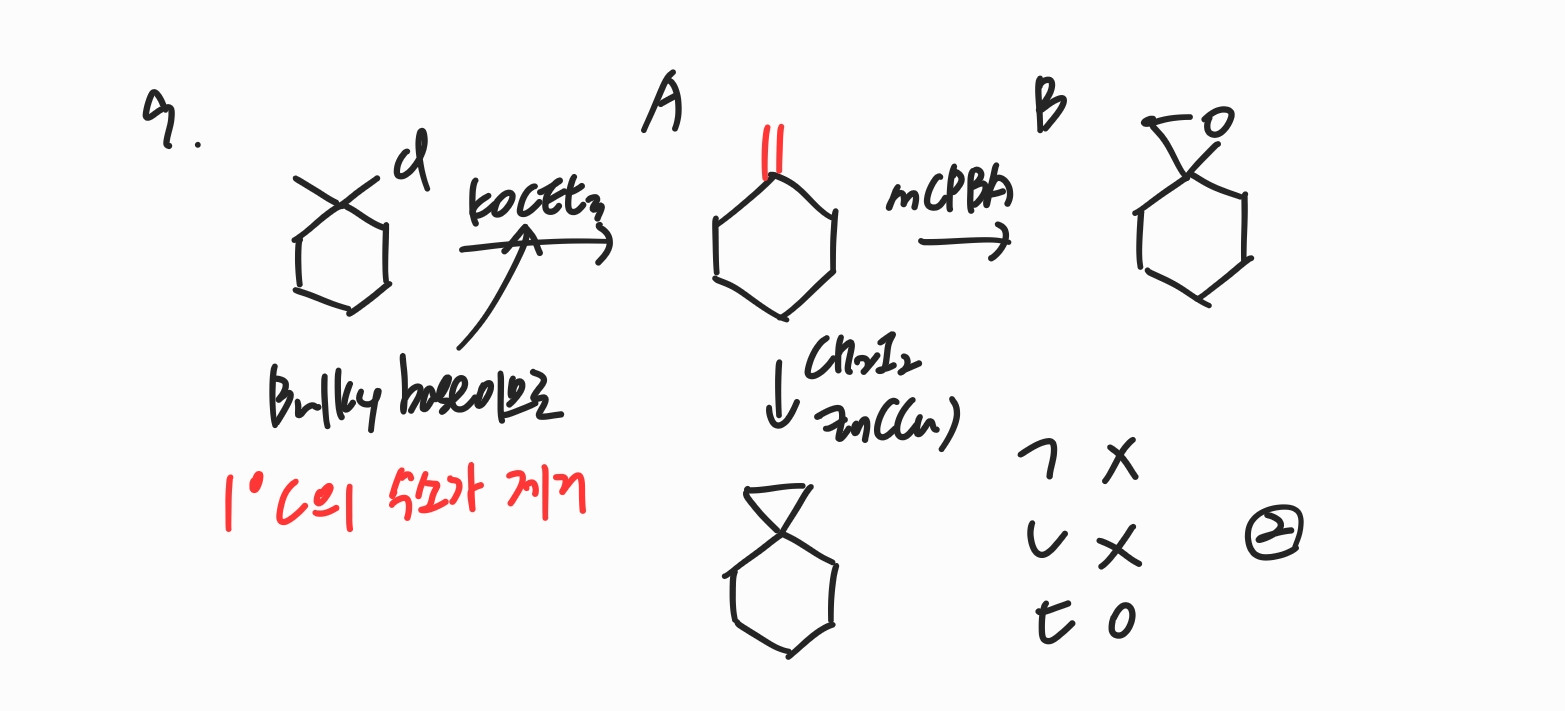 9.
A
B
Cl
O
KOCEt₃
mCPBA
Bulky base이므로
CH₂I₂
Zn(Cu)
1°C의 수소가 제거
ㄱ X
ㄴ X
ㄷ O
②